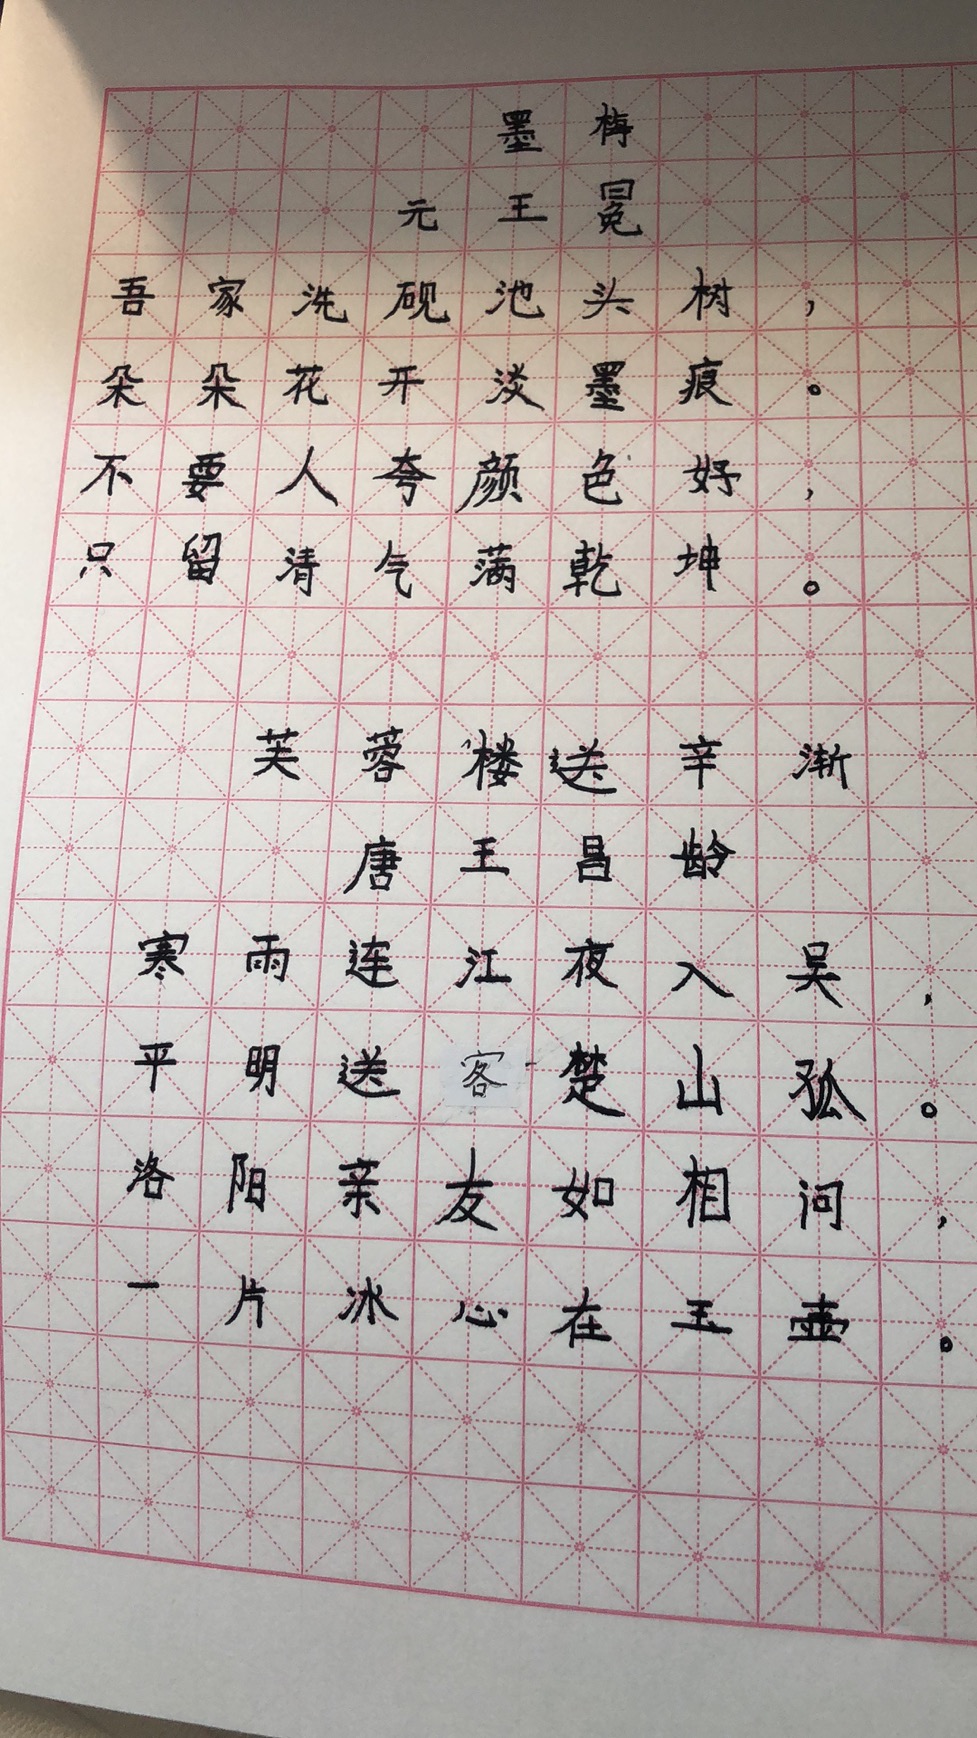 墨梅
元王冕
吾家洗砚池头树，
朵朵花开淡墨痕。
不要人夸颜色好，
只留清气满乾坤。
芙蓉楼送辛渐
唐王昌龄
寒雨连江夜入吴，
平明送客楚山孤。
洛阳亲友如相问，
一片冰心在玉壶。